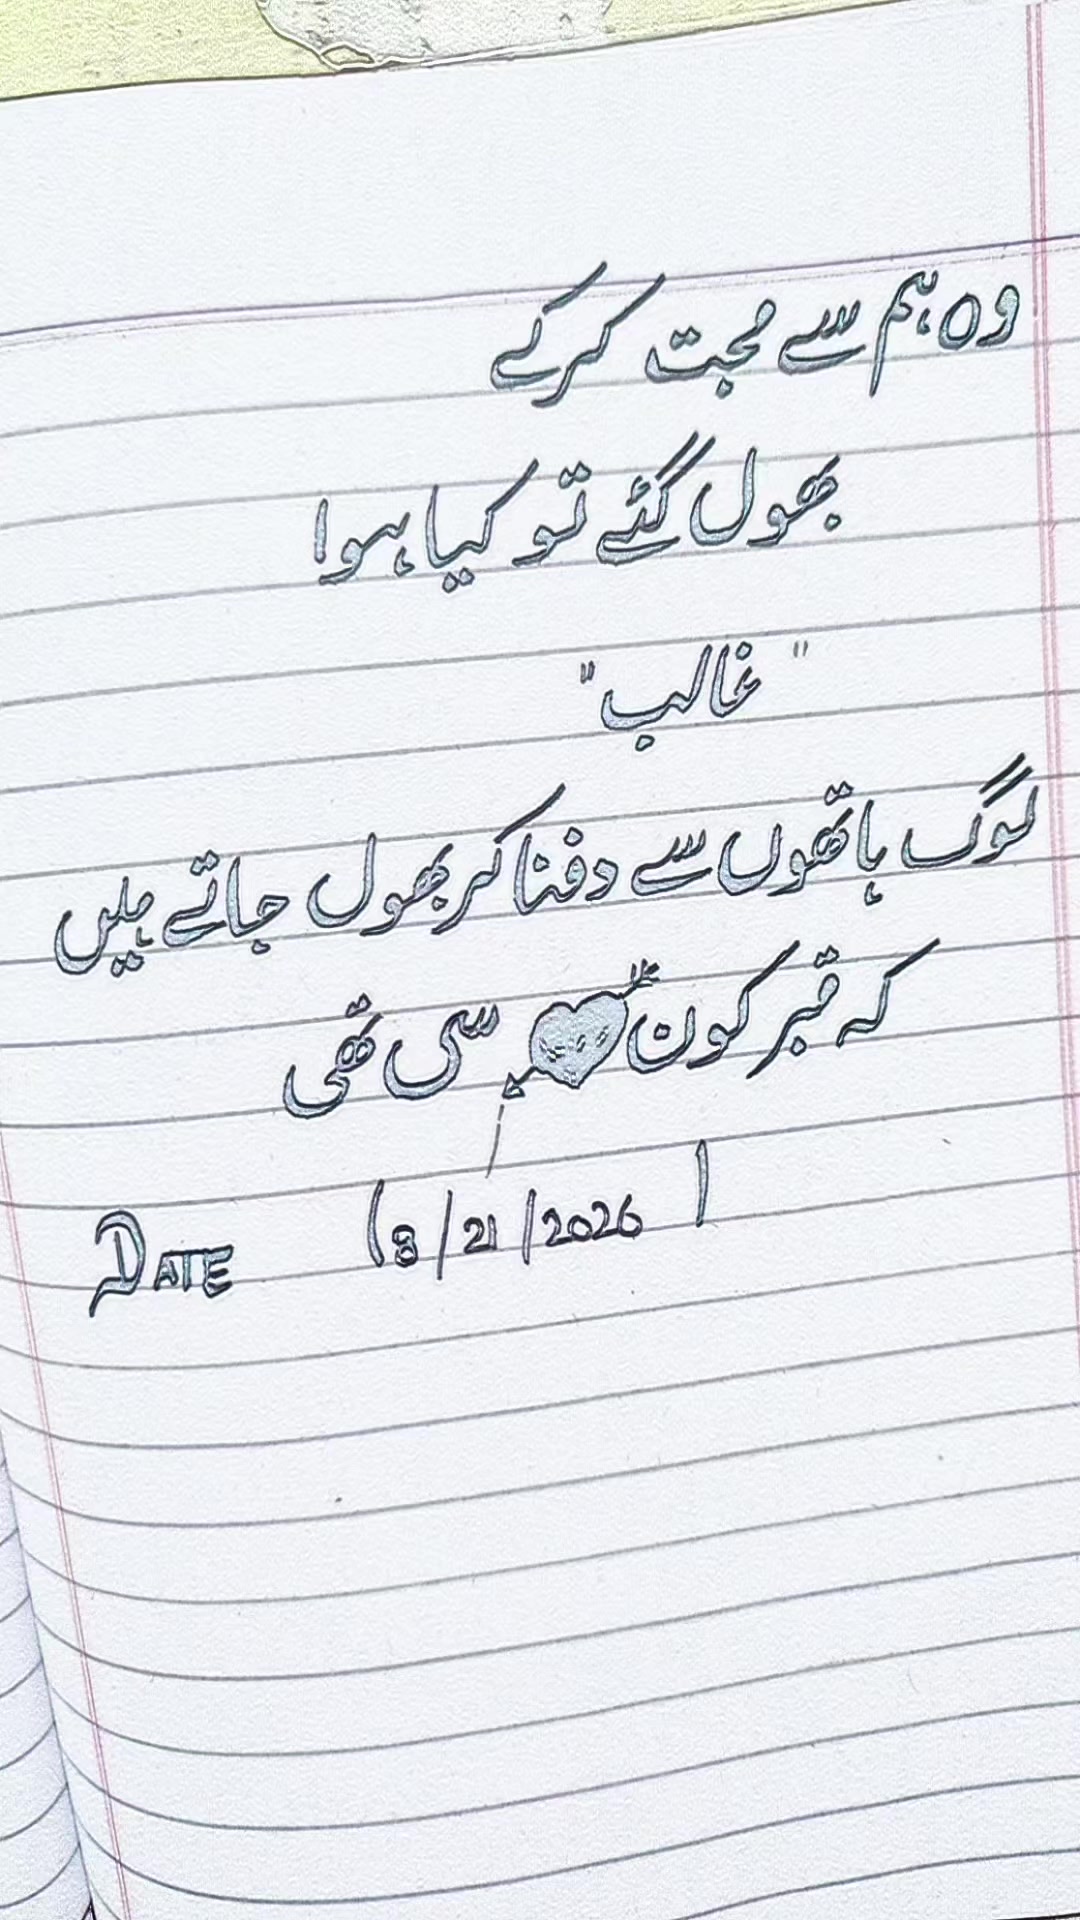 وہ ہم سے محبت کرکے
بھول گئے تو کیا ہوا
"غالب"
لوگ ہاتھوں سے دفنا کر بھول جاتے ہیں
کہ قبر کون سی تھی
DATE (8/21/2026)